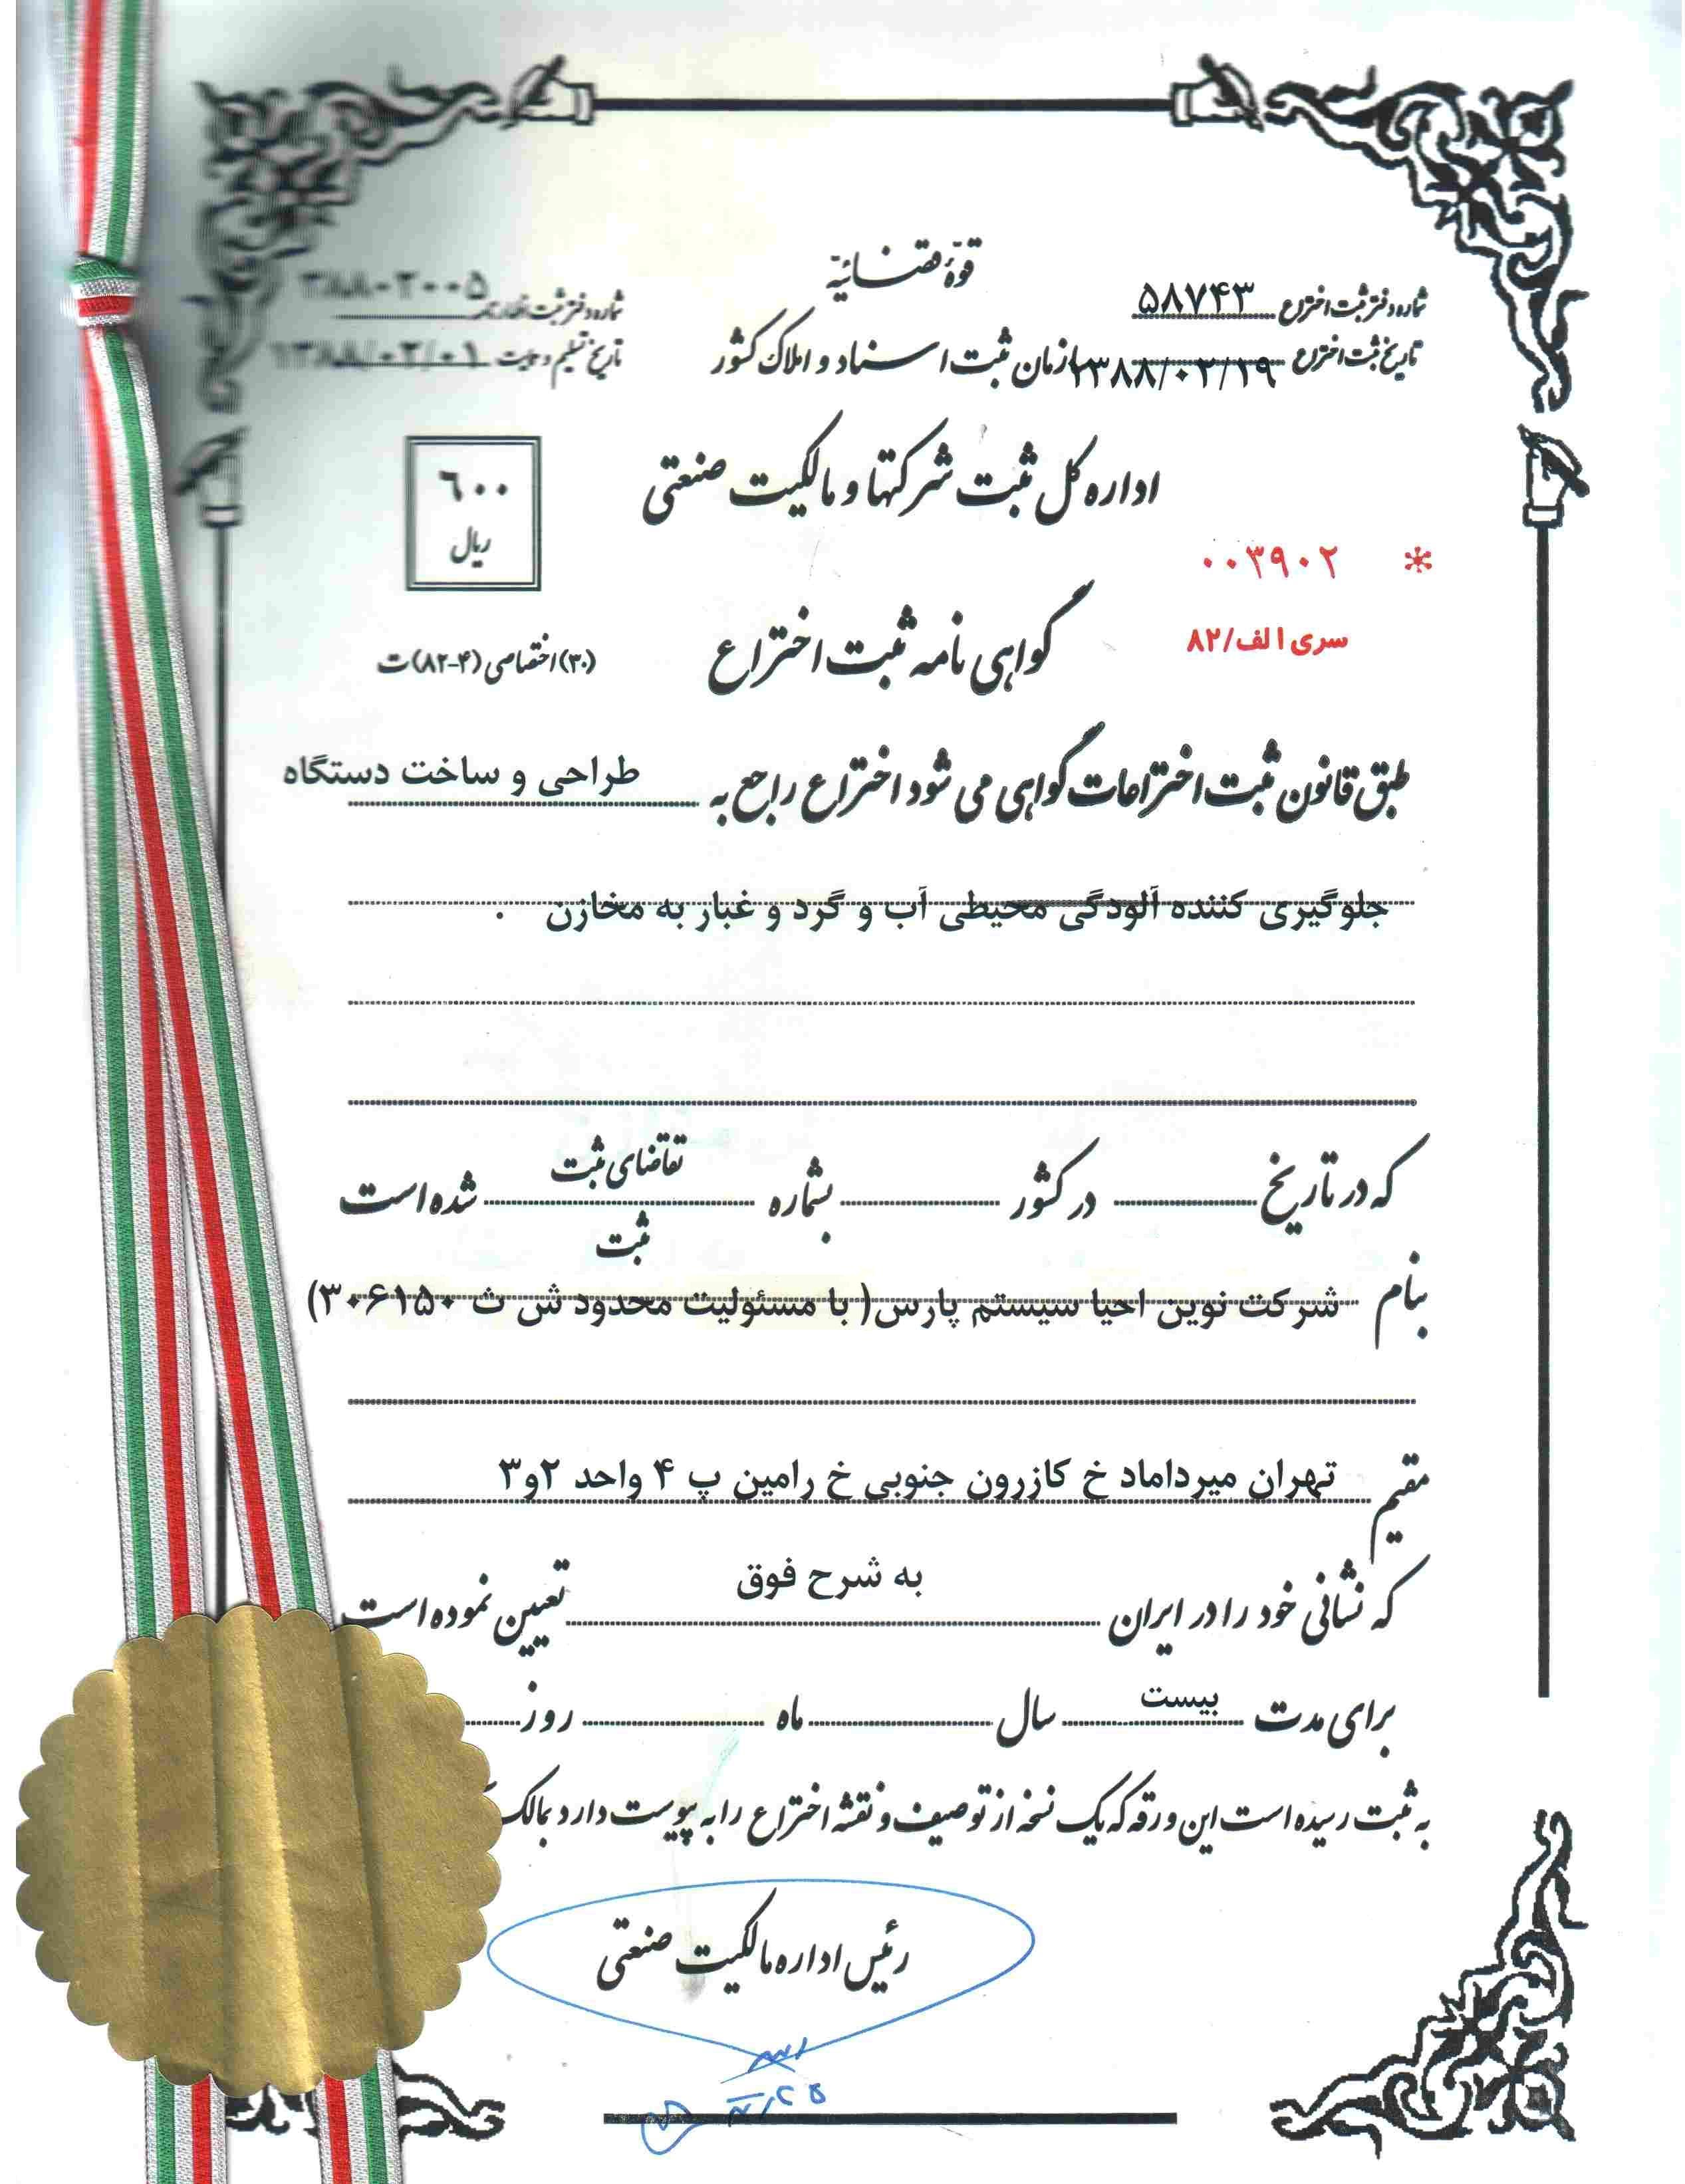 قوهٔ قضائیّه
شماره دفتر ثبت اختراع ۵۸۷۴۳
شماره دفتر ثبت اظهارنامه ۳۸۸۰۲۰۰۵
سازمان ثبت اسناد و املاک کشور
تاریخ ثبت اختراع ۱۳۸۸/۰۲/۱۹
تاریخ تسلیم و ۱۳۸۸/۰۲/۰۱
اداره کل ثبت شرکتها و مالکیت صنعتی
۶۰۰
ریال
* ۰۰۳۹۰۲
سری الف/۸۲
گواهی نامه ثبت اختراع
(۳۰) اختصاصی (۴-۸۲) ت
طبق قانون ثبت اختراعات گواهی می شود اختراع راجع به طراحی و ساخت دستگاه
جلوگیری کننده آلودگی محیطی آب و گرد و غبار به مخازن .
که در تاریخ در کشور بشماره تقاضای ثبت شده است
ثبت
بنام شرکت نوین احیا سیستم پارس( با مسئولیت محدود ش ث ۳۰۶۱۵۰)
مقیم تهران میرداماد خ کازرون جنوبی خ رامین پ ۴ واحد ۲و۳
که نشانی خود را در ایران به شرح فوق تعیین نموده است
برای مدت بیست سال ماه روز
به ثبت رسیده است این ورقه که یک نسخه از توصیف و نقشه اختراع را به پیوست دارد بمالک
رئیس اداره مالکیت صنعتی